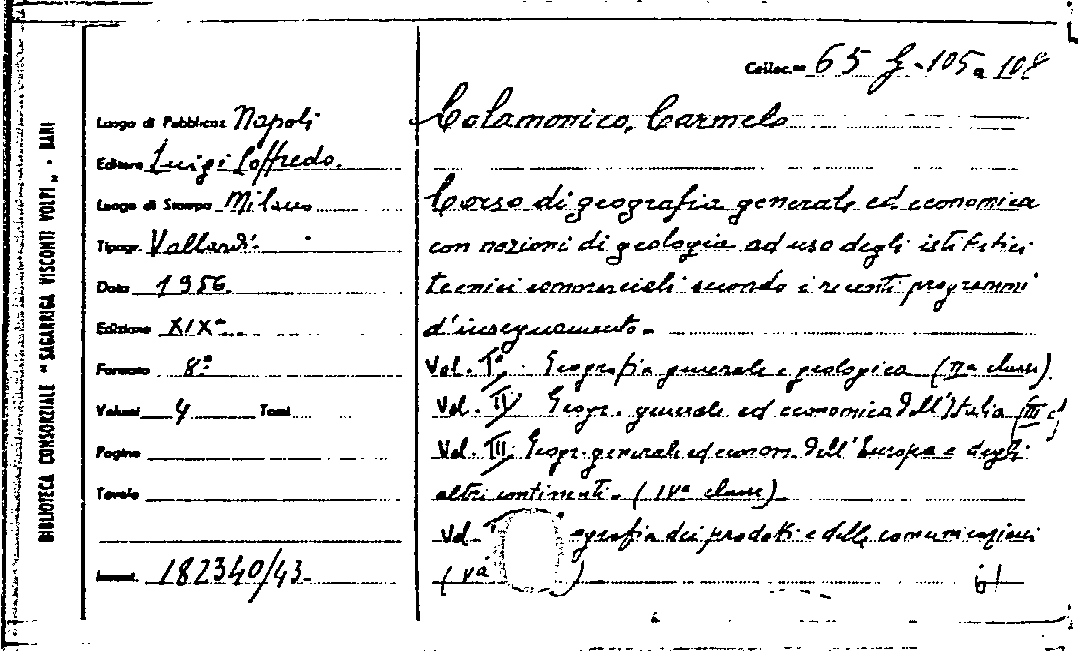 BIBLIOTECA CONSORZIALE "SAGARRIGA VISCONTI VOLPI" - BARI
Colloc.ne 65 G - 105 a 108
Luogo di Pubblicaz. Napoli
Editore Luigi Loffredo.
Luogo di Stampa Milano
Tipogr. Vallardi.
Data 1956.
Edizione XIXª
Formato 8º
Volumi 4 Tomi
Pagine
Tavole
Invent. 182340/43.
Colamonico, Carmelo
Corso di geografia generale ed economica
con nozioni di geologia ad uso degli istituti
tecnici commerciali secondo i recenti programmi
d'insegnamento.
Vol. Iº. Geografia generale e geologica (IIª classe)
Vol. II Geogr. generale ed economica dell'Italia (III c)
Vol. III Geogr. generale ed econom. dell'Europa e degli
altri continenti. (IVª classe)
Vol. ografia dei prodotti e delle comunicazioni
(Vª )